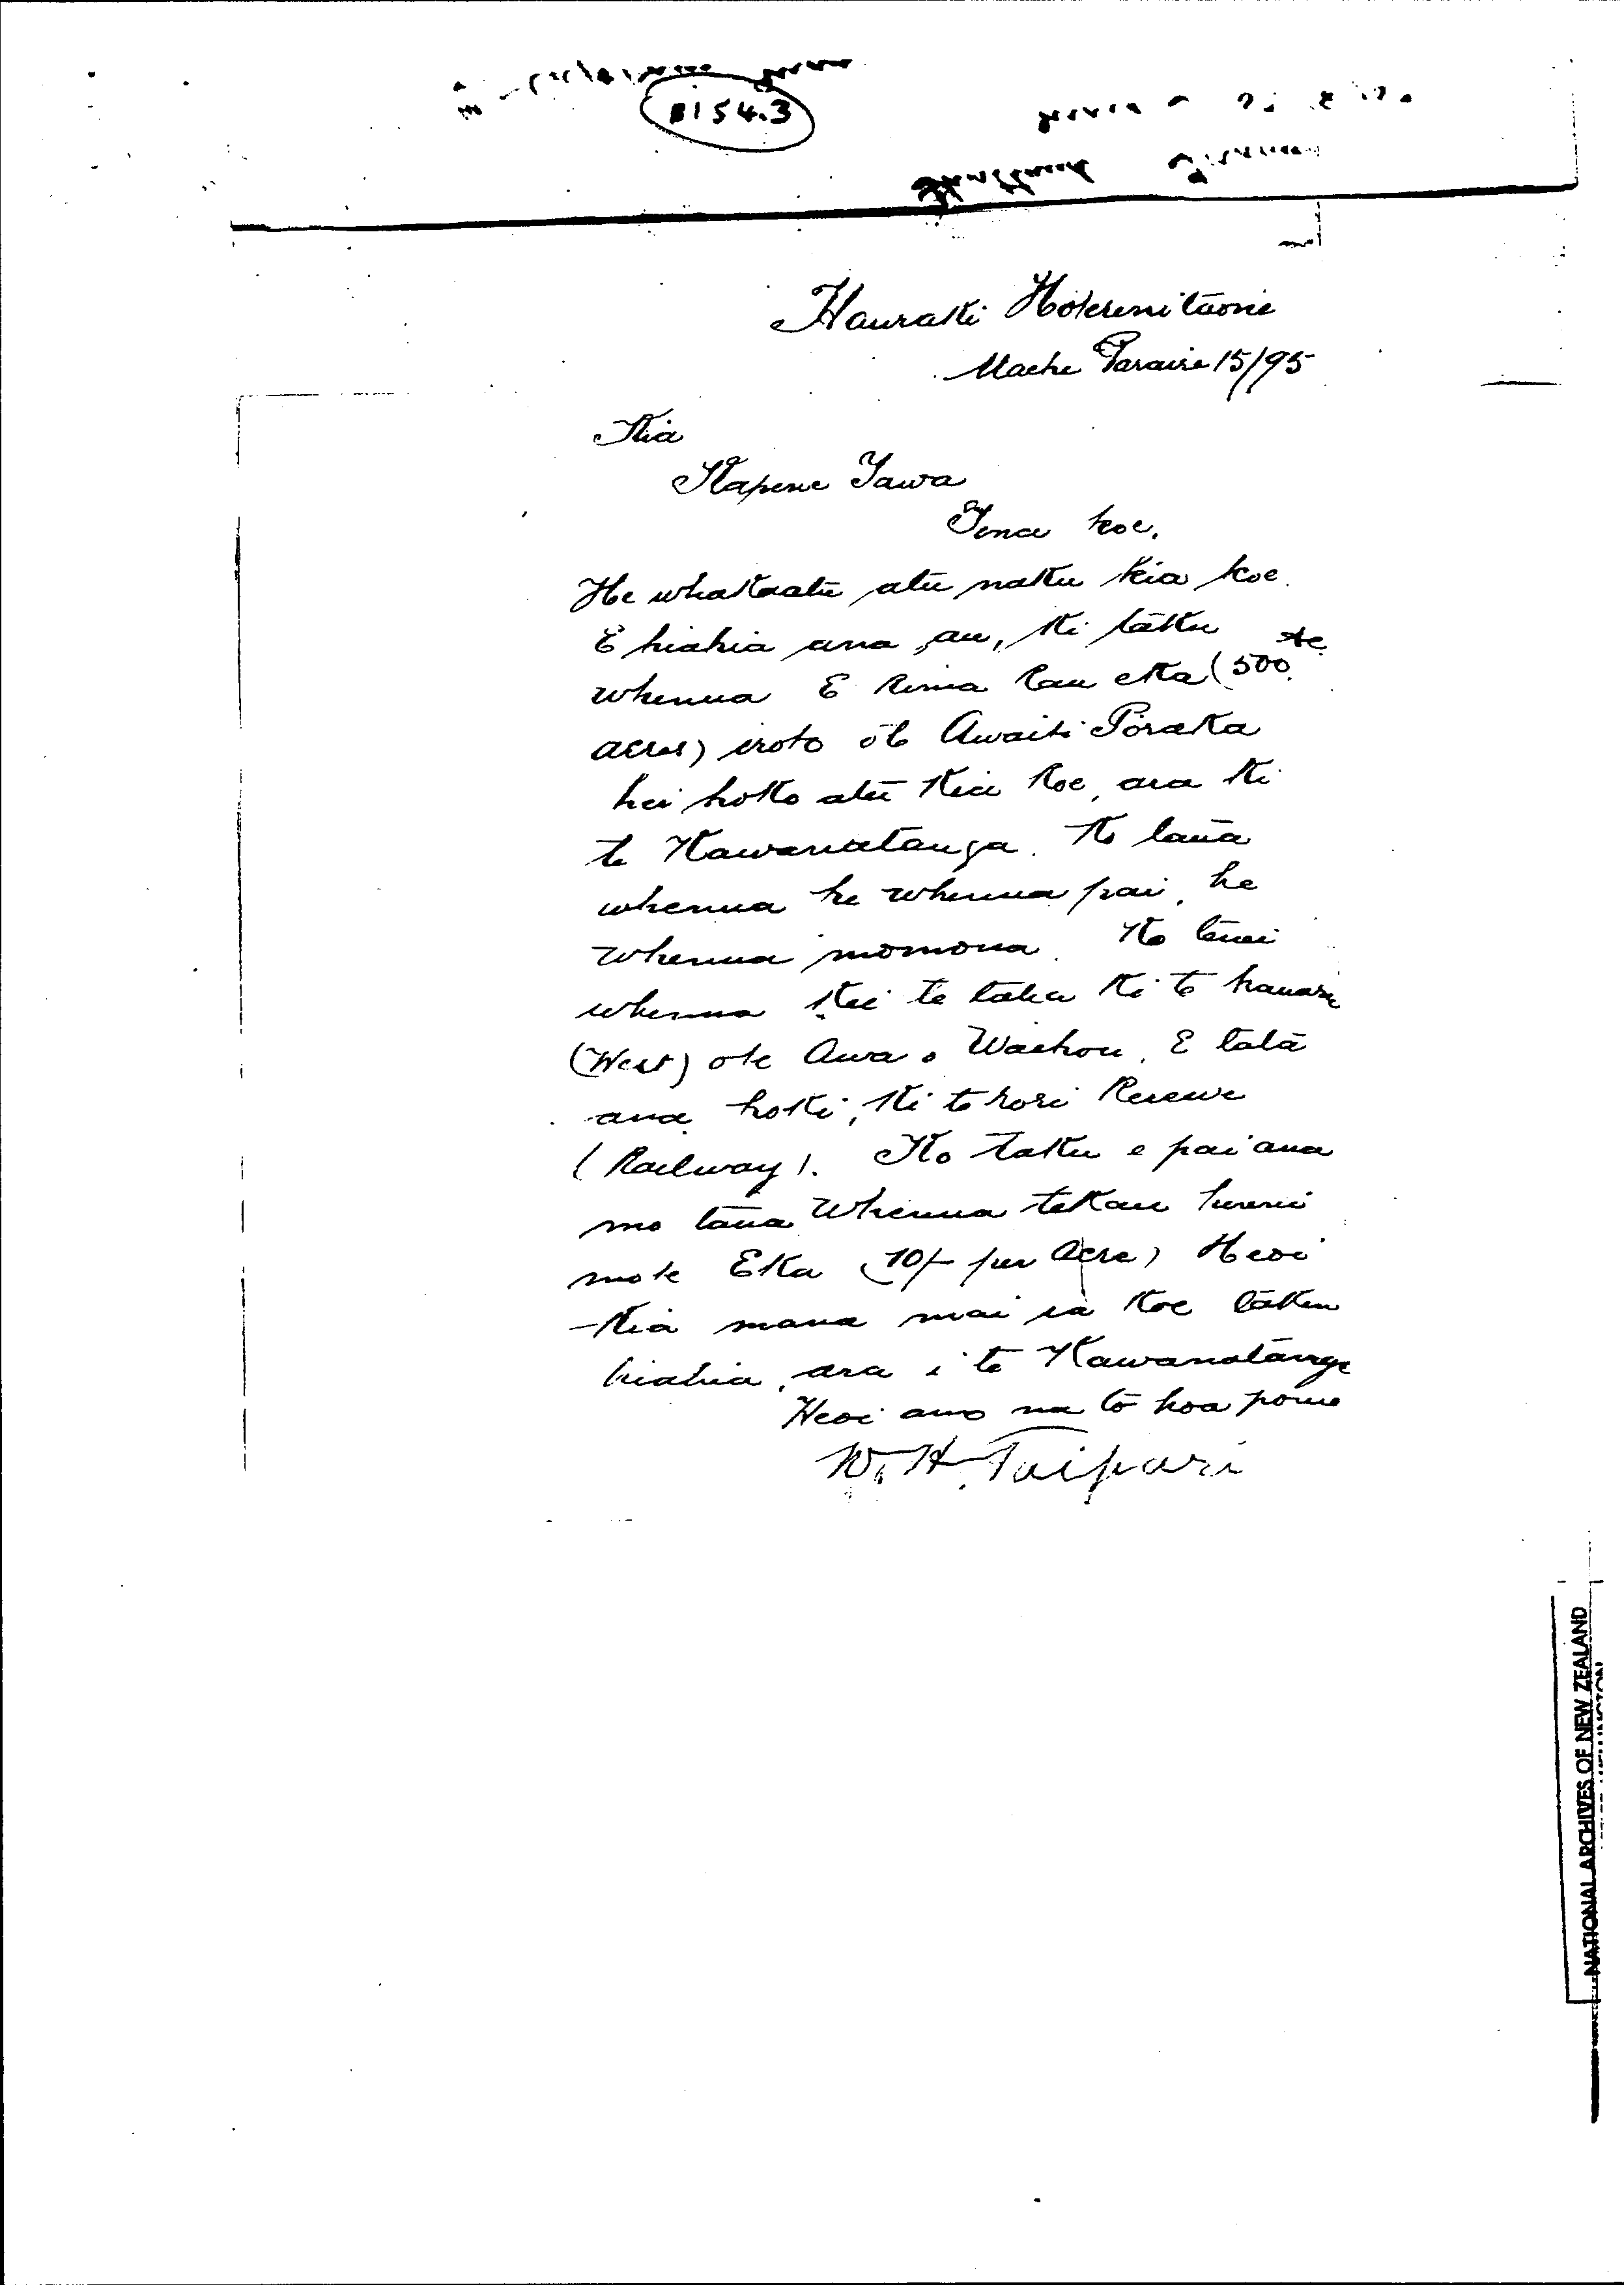 B154.3
Hauraki Hoterenitaone
Mache Paraire 15/95
Kia
Kapene Tawa
Tena koe.
He whakaatu atu naku kia koe.
E hiahia ana au, ki tāku
whenua E Rima Rau eka (500
acres) iroto ōte Awaiti Pōraka
hei hoko atu kia koe, ara ki
te Kawanatanga. Ko taua
whenua he whenua pai, he
whenua momona. Ko tenei
whenua Kei te taha ki te hauauru
(West) ote Awa o Waihou, E tata
ana hoki, ki te rori Rerewe
(Railway). Ko taku e pai ana
mo taua Whenua tekau hereni
mote Eka (10/- per Acre) Heoi
Kia mana mai ia koe tāku
hiahia, ara i te Kawanatanga
Heoi ano na tō hoa pono
W. H. Taipari
NATIONAL ARCHIVES OF NEW ZEALAND